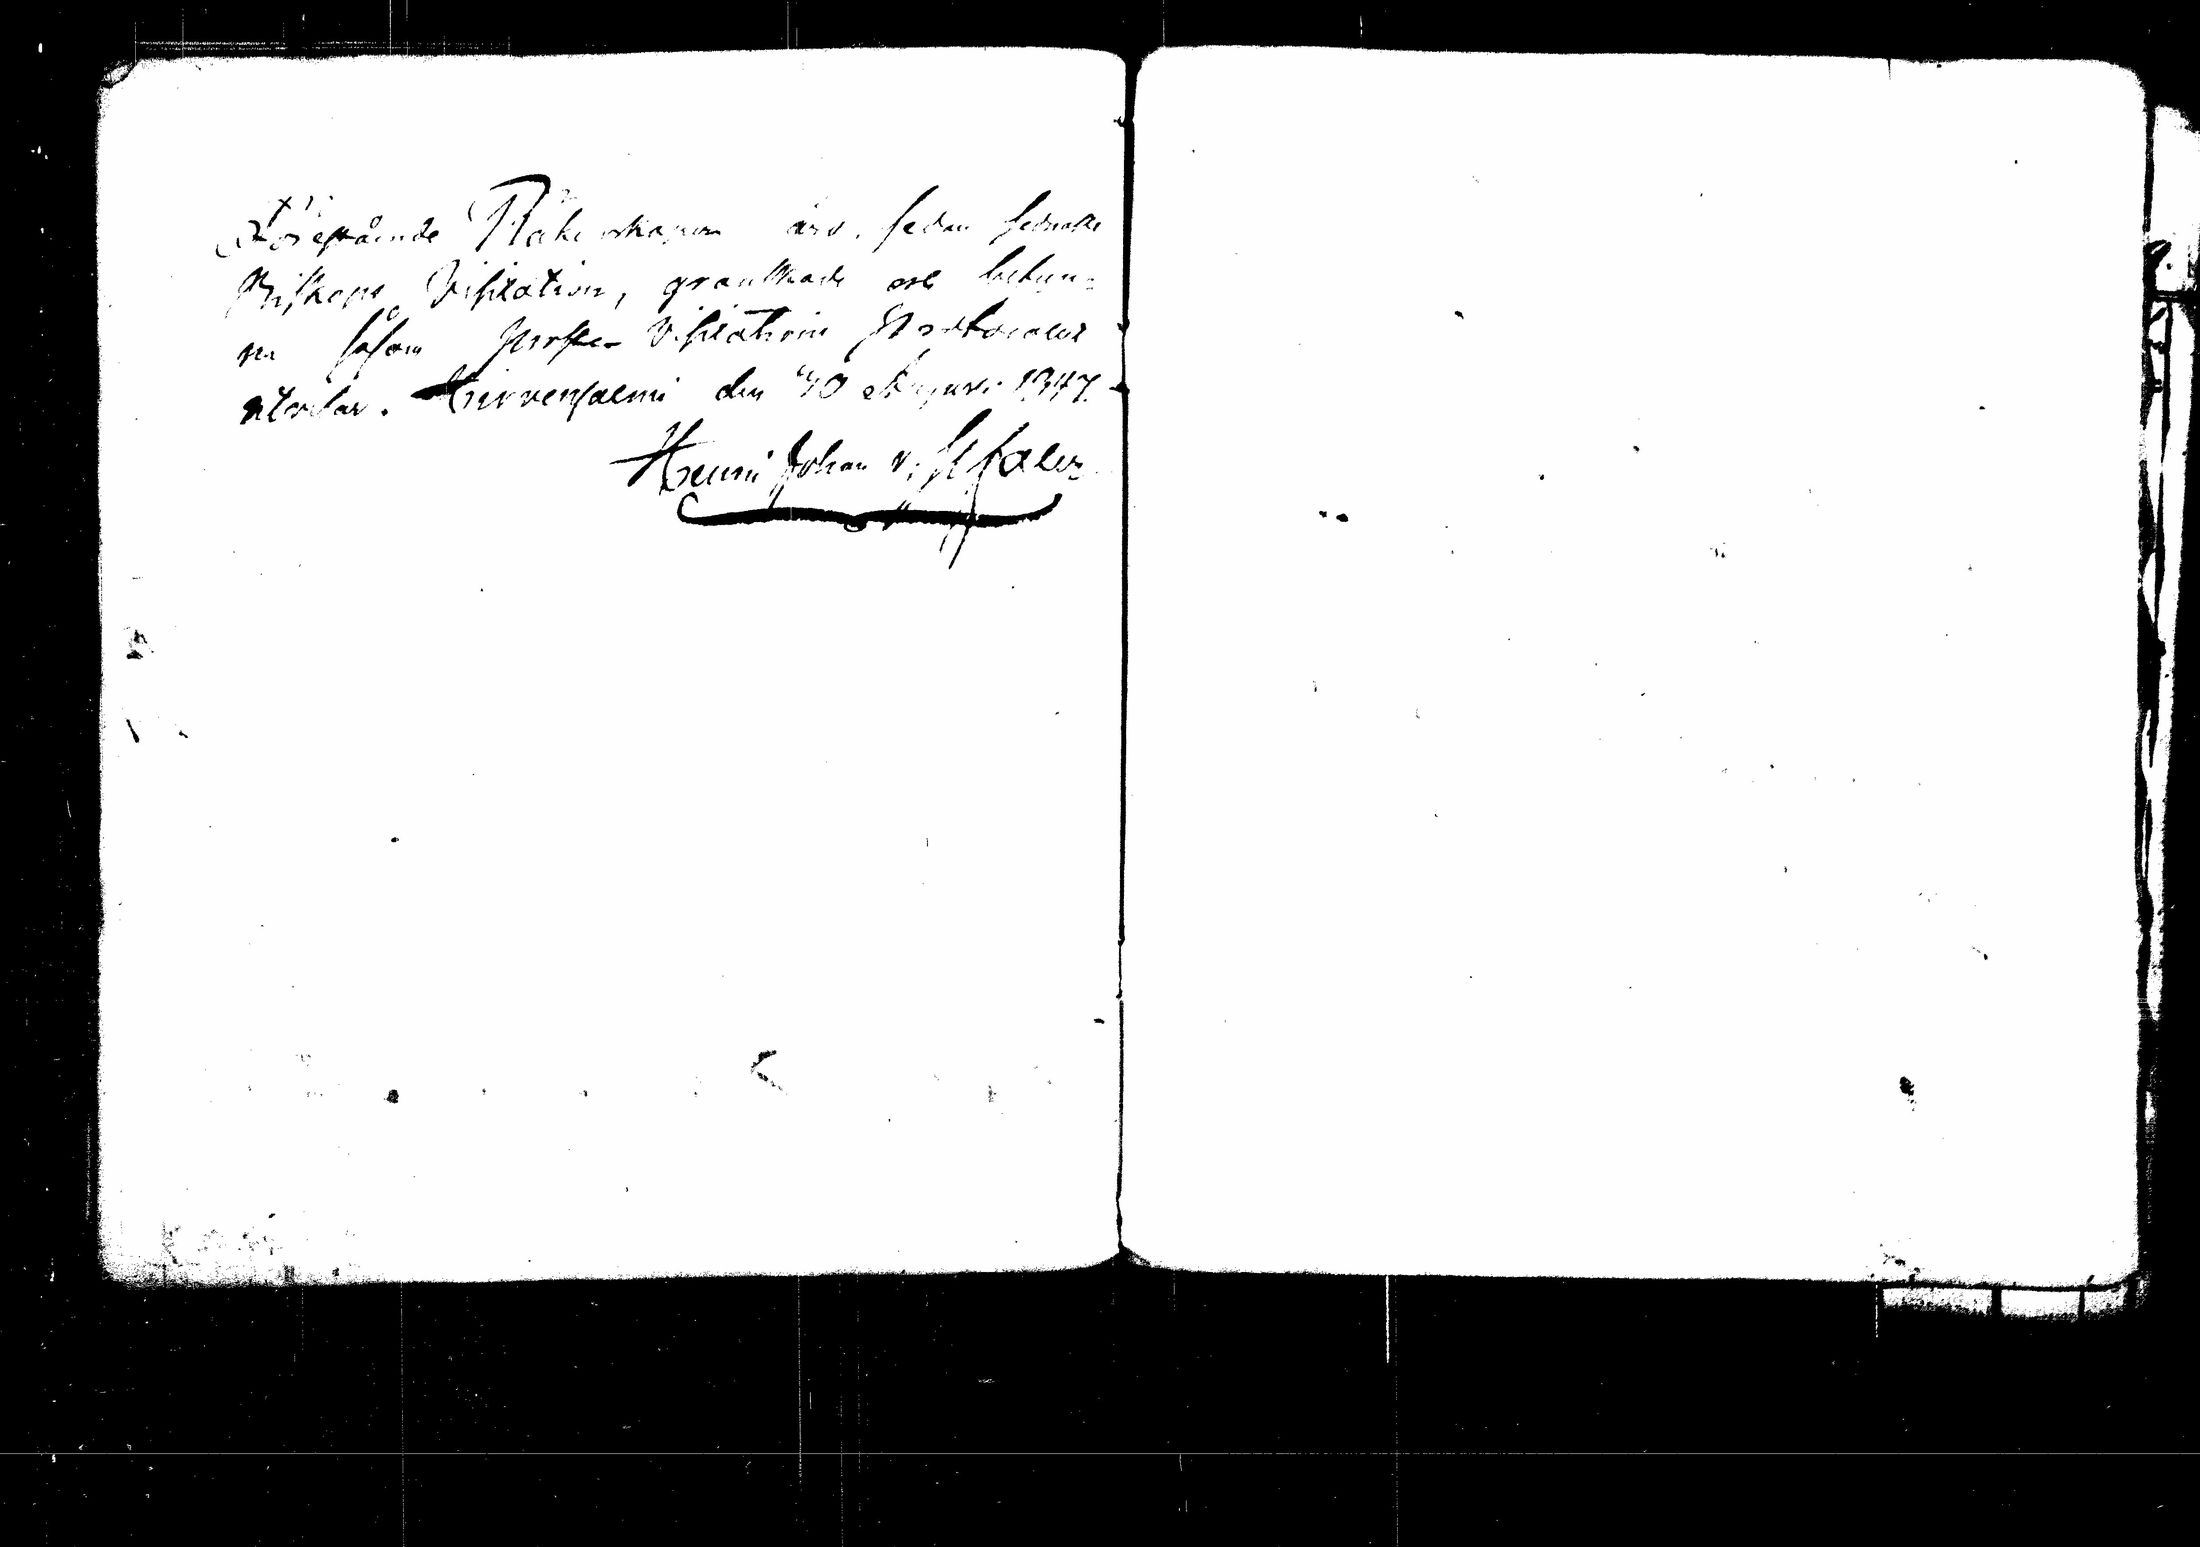 Förestående Räkenskaper äro, sedan sednaste
Biskops Visitation, granskade och befun-
ne såsom Prosten Visitations Protocolet
utvisar. Hirvensalmi den 30 Augusti 1847.
Henric Johan